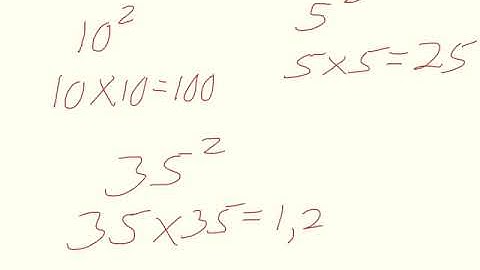 10²
10×10=100
5²
5×5=25
35²
35×35=1,2